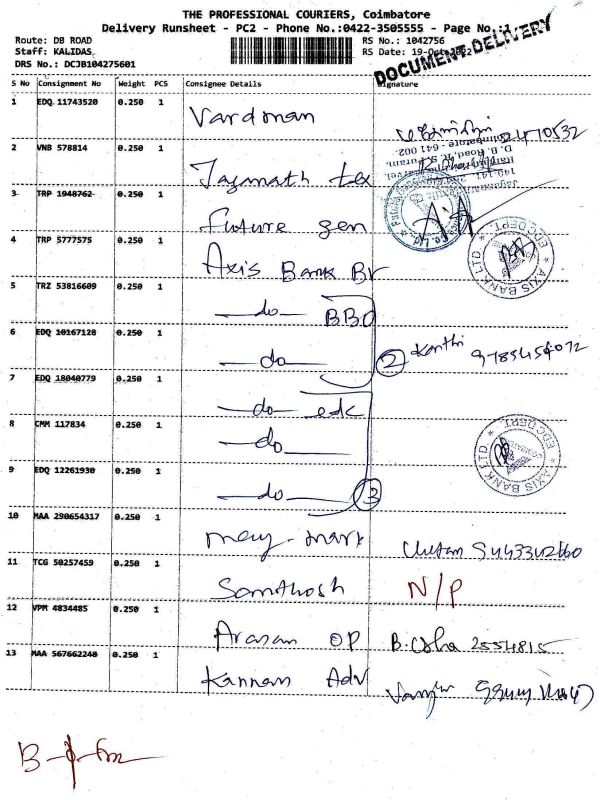 THE PROFESSIONAL COURIERS, Coimbatore
Delivery Runsheet - PC2 - Phone No.:0422-3505555 - Page No.:1
Route: DB ROAD RS No.: 1042756
Staff: KALIDAS. RS Date: 19-Oct-2022
DRS No.: DCJB104275601
DOCUMENT DELIVERY
S No Consignment No Weight PCS Consignee Details Signature
1 EDQ 11743520 0.250 1 Vardman
2 VNB 578814 0.250 1 Jagannath tex
D. B. Road, R.S. Puram,
Coimbatore - 641 002.
3 TRP 1948762 0.250 1 Future gen
4 TRP 5777575 0.250 1 Axis Bank Br
AXIS BANK LTD. EDC DEPT.
5 TRZ 53816609 0.250 1 do BBO
6 EDQ 10167128 0.250 1 do 2 Kanthi
7 EDQ 18040779 0.250 1 do edc
8 CMM 117834 0.250 1 do
AXIS BANK LTD. EDC DEPT.
9 EDQ 12261930 0.250 1 do 3
10 MAA 290654317 0.250 1 mark
11 TCG 50257459 0.250 1 Santhosh N/P
12 VPM 4834485 0.250 1 Arasan OP B. Usha 2554815
13 MAA 567662248 0.250 1 Kannan Adv